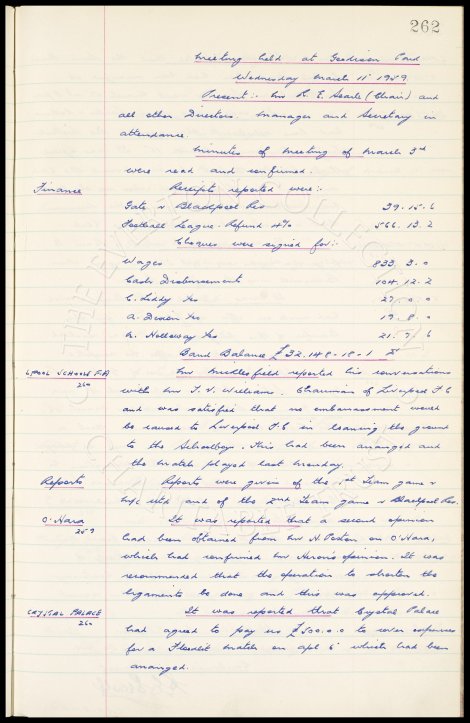 262
Meeting held at Goodison Park
Wednesday March 11th 1959.
Present:- Mr R. E. Searle (Chair) and
all other Directors. Manager and Secretary in
attendance.
Minutes of Meeting of March 3rd
were read and confirmed.
Finance Receipts reported were:-
Gate v Blackpool Res 39.15.6
Football League. Refund 4% 566.13.2
Cheques were signed for:-
Wages 833.3.0
Cash Disbursements 104.12.2
C. Leddy Fee 27.0.0
A. Dixon Fee 19.8.0
A. Holloway Fee 21.7.6
Bank Balance £32.148-18-1
L'POOL SCHOOLS F.A. Mr Micklesfield reported his conversations
260 with Mr T. V. Williams. Chairman of Liverpool F.C
and was satisfied that no embarrassment would
be caused to Liverpool F.C in loaning the ground
to the Schoolboys. This had been arranged and
the match played last Monday.
Reports Reports were given of the 1st Team game v
M/c Utd and of the 2nd Team game v Blackpool Res.
O'Hara It was reported that a second opinion
259 had been obtained from Mr N. Poston on O'Hara,
which had confirmed Mr Heron's opinion. It was
recommended that the operation to shorten the
ligaments be done and this was approved.
CRYSTAL PALACE It was reported that Crystal Palace
260 had agreed to pay us £500.0.0 to cover expenses
for a Floodlit match on Apl 6th which had been
arranged.
THE EVERTON COLLECTION
CHARITABLE